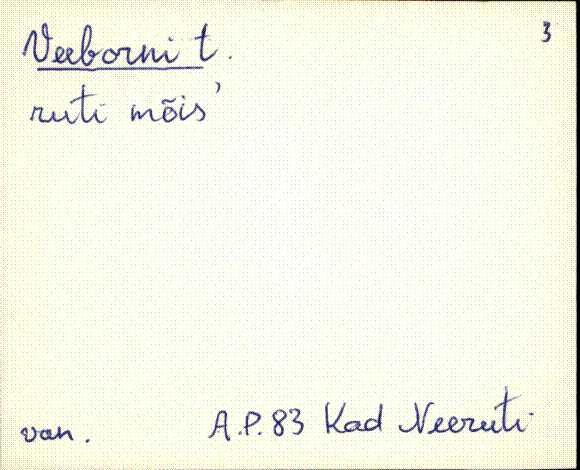 3
Veeborni t.
ruti mõis'
van. A.P.83 Kad Neeruti